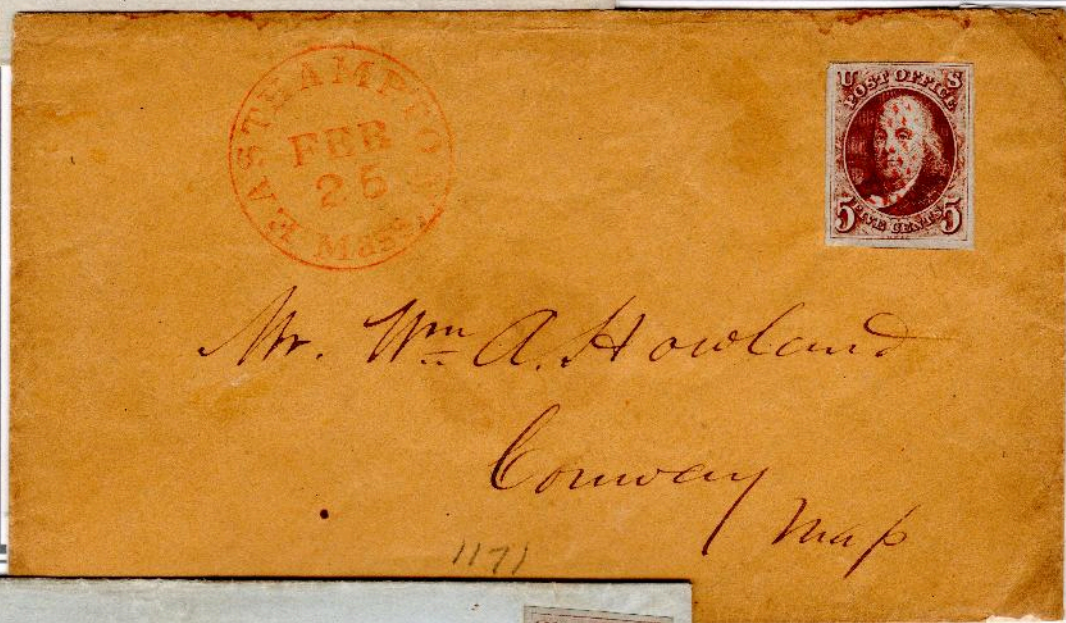 EASTHAMPTON Mass.
FEB
25
U S
POST OFFICE
5 FIVE CENTS 5
Mr. Wm A. Howland
Conway
Mass
1171